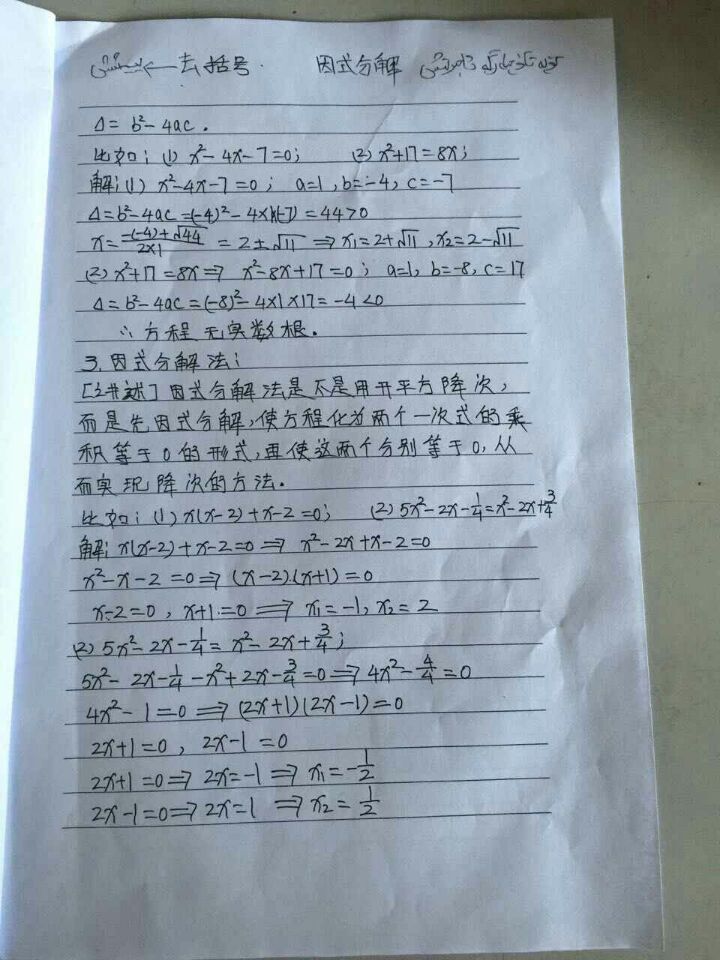 ← 去括号. 因式分解
Δ= b²-4ac.
比如: (1) x²-4x-7=0; (2) x²+17=8x;
解: (1) x²-4x-7=0; a=1, b=-4, c=-7
Δ=b²-4ac=(-4)²-4×1×(-7)=44>0
x=\frac{-(-4)±√44}{2×1} = 2±√11 ⇒ x₁=2+√11, x₂=2-√11
(2) x²+17=8x ⇒ x²-8x+17=0; a=1, b=-8, c=17
Δ=b²-4ac=(-8)²-4×1×17=-4<0
∴方程无实数根.
3. 因式分解法:
[讲述] 因式分解法是不是用开平方降次,
而是先因式分解,使方程化为两个一次式的乘
积等于0的形式,再使这两个分别等于0,从
而实现降次的方法.
比如: (1) x(x-2)+x-2=0; (2) 5x²-2x-1/4=x²-2x+3/4
解: x(x-2)+x-2=0 ⇒ x²-2x+x-2=0
x²-x-2=0 ⇒ (x-2)·(x+1)=0
x-2=0, x+1=0 ⇒ x₁=-1, x₂=2
(2) 5x²-2x-1/4=x²-2x+3/4;
5x²-2x-1/4-x²+2x-3/4=0 ⇒ 4x²-4/4=0
4x²-1=0 ⇒ (2x+1)(2x-1)=0
2x+1=0, 2x-1=0
2x+1=0 ⇒ 2x=-1 ⇒ x₁=-1/2
2x-1=0 ⇒ 2x=1 ⇒ x₂=1/2